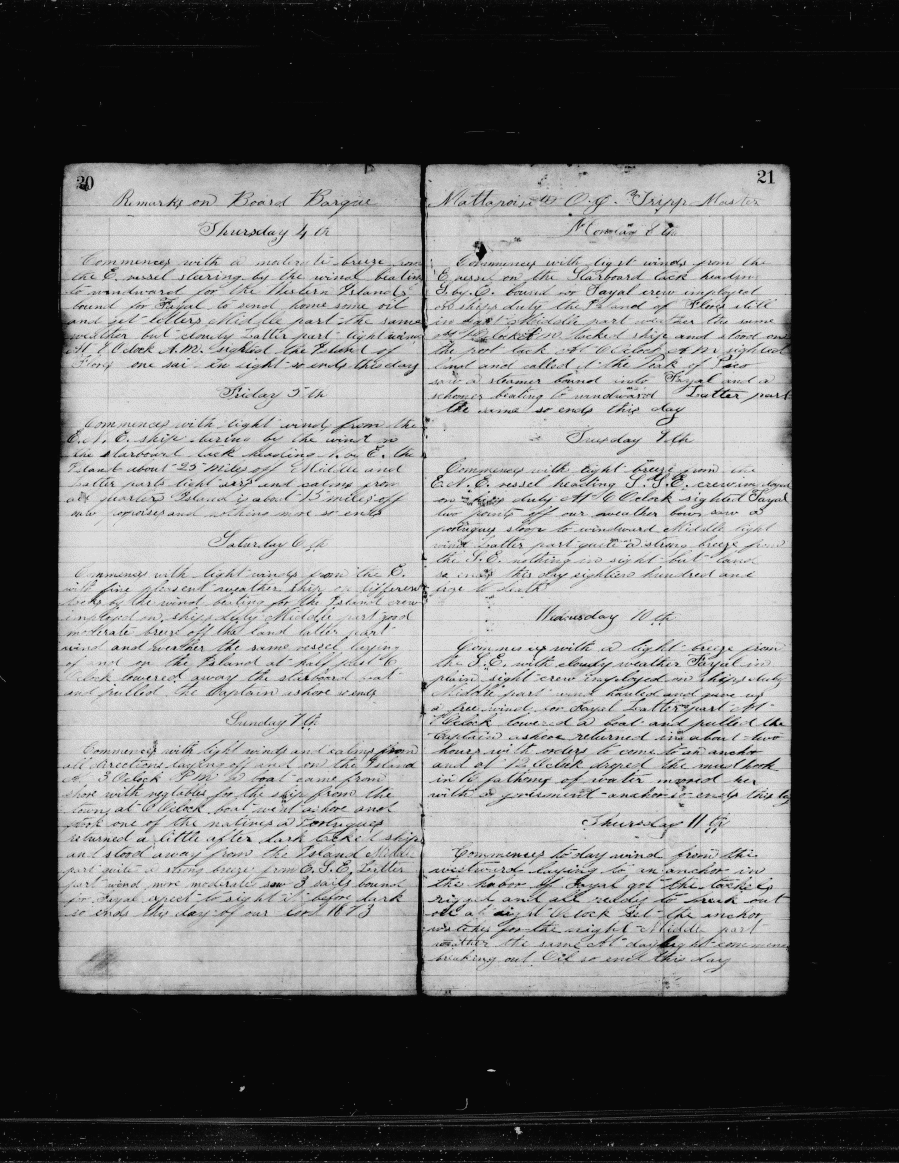 20
Remarks on Board Barque
Thursday 4th
Commences with a moderate breeze from
the E. vessel steering by the wind beating
to windward for the Western Islands
bound for Fayal to send home some oil
and get letters Middle part the same
weather but cloudy Latter part light wind
At 6 OClock A.M. Sighted the Island of
Flors one sail in sight so ends this day
Friday 5th
Commences with light wind from the
E.N.E. ship by the wind
the starboard tack heading E. the
Island about 25 miles off Middle and
Latter parts light airs and calms from
all quarters Island is about 15 miles off
saw porpoises and nothing more so ends
Saturday 6th
Commences with light winds from the E.
with fine plesent weather ship on different
tacks by the wind beating for the Island crew
imployed on ships duty Middle part good
moderate breeze off the land latter part
wind and weather the same vessel laying
of and on the Island at half past 6
Oclock lowered away the starboard boat
and pulled the Captain ashore so ends
Sunday 7th
Commences with light winds and calms from
all directions laying off and on the Island
At 3 Oclock P.M. a boat came from
shore with vegtables for the ship from the
town at 6 OClock boat went ashore and
took one of the natives a Portugues
returned a little after dark tacked ship
and stood away from the Island Middle
part quite a strong breeze from E.S.E. Latter
part wind more moderate saw 3 sails bound
for Fayal before dark
so ends this day of our Lord 1873
21
Mattapoisett O.G. Tripp Master
Monday 8th
Commences with light winds from the
E. on the Starboard tack heading
S. by E. bound to Fayal crew imployed
on ships duty the Island of Flors still
in sight Middle part weather the same
tacked ship and stood on
the port tack At 6 OClock A M sighted
land and called it the Peak of Pico
saw a steamer bound into Fayal and a
schoner beating to windward Latter part
the same so ends this day
Tuesday 9th
Commences with light breeze from the
E.N.E. vessel heading S.S.E. crew imployed
on ships duty At 6 OClock sighted Fayal
two points off our weather bow saw a
portugues sloop to windward Middle light
wind Latter part quite a strong breeze from
the S.E. nothing in sight but land
so ends this day eighteen hundred and

Wednesday 10th
Commences with a light breeze from
the S.E. with cloudy weather Fayal in
plain sight crew imployed on ships duty
Middle part wind hauled and gave us
a free wind for Fayal Latter part At
OClock lowered a boat and pulled the
Captain ashore returned in about two
hours with orders to come to an anchor
and at 12 OClock droped the mud hook
in 16 fathoms of water moored her
with a goverment anchor so ends this day
Thursday 11th
Commences to day wind from the
westward laying to an anchor in
the habor of Fayal got the tackels
riged and all reddy to break out
oil at eight OClock set the anchor
watches for the night Middle part
weather the same At daylight commenced
breaking out Oil so ends this day